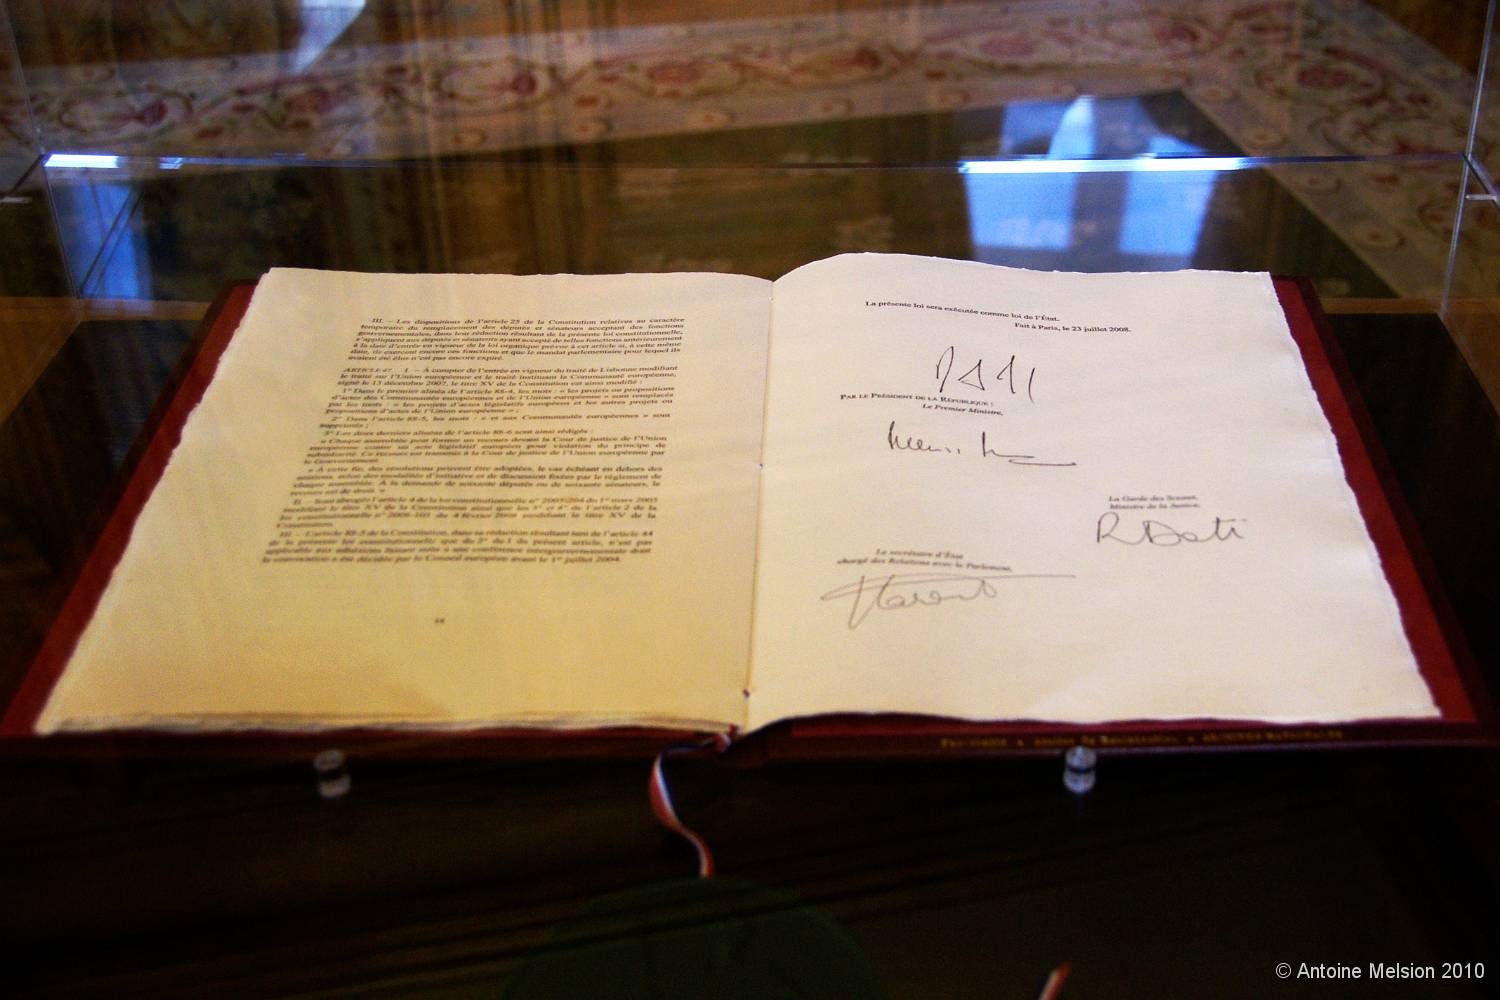 III. – Les dispositions de l'article 25 de la Constitution relatives au caractère
temporaire du remplacement des députés et sénateurs acceptant des fonctions
gouvernementales, dans leur rédaction résultant de la présente loi constitutionnelle,
s'appliquent aux députés et sénateurs ayant accepté de telles fonctions antérieurement
à la date d'entrée en vigueur de la loi organique prévue à cet article si, à cette même
date, ils exercent encore ces fonctions et que le mandat parlementaire pour lequel ils
avaient été élus n'est pas encore expiré.
ARTICLE 47 I. – À compter de l'entrée en vigueur du traité de Lisbonne modifiant
le traité sur l'Union européenne et le traité instituant la Communauté européenne,
signé le 13 décembre 2007, le titre XV de la Constitution est ainsi modifié :
1° Dans le premier alinéa de l'article 88-4, les mots : « les projets ou propositions
d'actes des Communautés européennes et de l'Union européenne » sont remplacés
par les mots : « les projets d'actes législatifs européens et les autres projets ou
propositions d'actes de l'Union européenne » ;
2° Dans l'article 88-5, les mots : « et aux Communautés européennes » sont
supprimés ;
3° Les deux derniers alinéas de l'article 88-6 sont ainsi rédigés :
« Chaque assemblée peut former un recours devant la Cour de justice de l'Union
européenne contre un acte législatif européen pour violation du principe de
subsidiarité. Ce recours est transmis à la Cour de justice de l'Union européenne par
le Gouvernement.
« À cette fin, des résolutions peuvent être adoptées, le cas échéant en dehors des
sessions, selon des modalités d'initiative et de discussion fixées par le règlement de
chaque assemblée. À la demande de soixante députés ou de soixante sénateurs, le
recours est de droit. »
II. – Sont abrogés l'article 4 de la loi constitutionnelle n° 2005-204 du 1er mars 2005
modifiant le titre XV de la Constitution ainsi que les 3° et 4° de l'article 2 de la
loi constitutionnelle n° 2008-103 du 4 février 2008 modifiant le titre XV de la
Constitution.
III. – L'article 88-5 de la Constitution, dans sa rédaction résultant tant de l'article 44
de la présente loi constitutionnelle que du 2° du I du présent article, n'est pas
applicable aux adhésions faisant suite à une conférence intergouvernementale dont
la convocation a été décidée par le Conseil européen avant le 1er juillet 2004.
La présente loi sera exécutée comme loi de l'État.
Fait à Paris, le 23 juillet 2008.
PAR LE PRÉSIDENT DE LA RÉPUBLIQUE :
Le Premier Ministre,
La Garde des Sceaux,
Ministre de la Justice,
R Dati
Le secrétaire d'État
chargé des Relations avec le Parlement,
© Antoine Melsion 2010